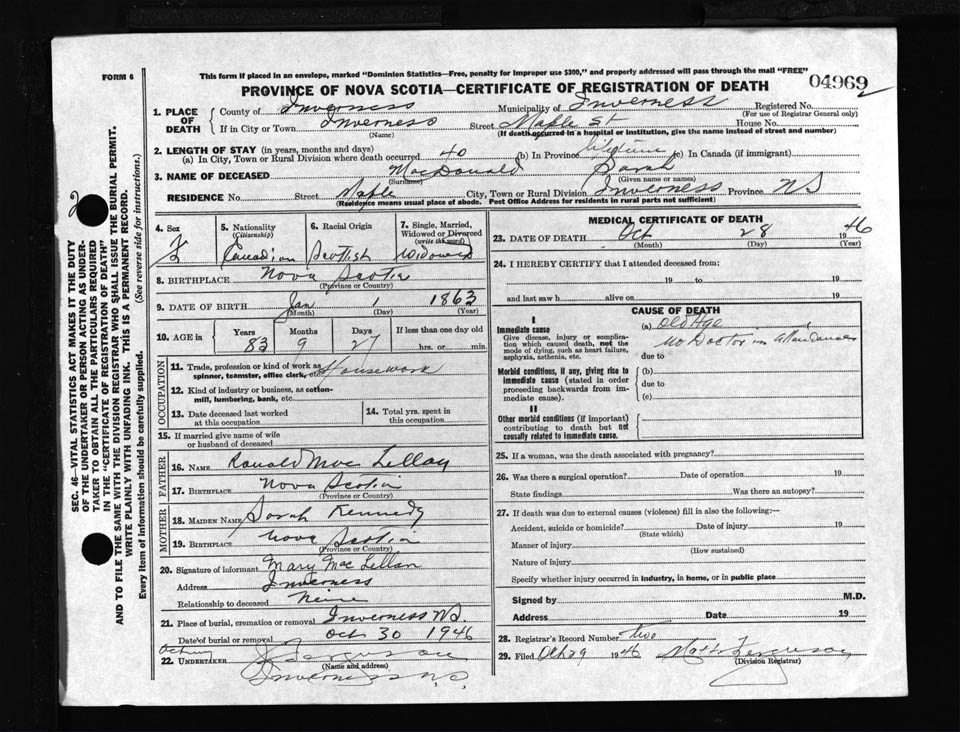 FORM 6
This form if placed in an envelope, marked "Dominion Statistics—Free, penalty for improper use $300," and properly addressed will pass through the mail "FREE"
04969
2
PROVINCE OF NOVA SCOTIA—CERTIFICATE OF REGISTRATION OF DEATH
1. PLACE OF DEATH
County of Inverness Municipality of Inverness Registered No.
(For use of Registrar General only)
If in City or Town Inverness Street Maple St House No.
(Name) (If death occurred in a hospital or institution, give the name instead of street and number)
2. LENGTH OF STAY (in years, months and days)
(a) In City, Town or Rural Division where death occurred 40 (b) In Province lifetime (c) In Canada (if immigrant)
3. NAME OF DECEASED MacDonald Sarah
(Surname) (Given name or names)
RESIDENCE No. Street Maple City, Town or Rural Division Inverness Province NS
(Residence means usual place of abode. Post Office Address for residents in rural parts not sufficient)
4. Sex
F
5. Nationality
(Citizenship)
Canadian
6. Racial Origin
Scottish
7. Single, Married, Widowed or Divorced
(write the word)
Widowed
8. BIRTHPLACE Nova Scotia
(Province or Country)
9. DATE OF BIRTH Jan 1 1863
(Month) (Day) (Year)
10. AGE in
Years Months Days If less than one day old
83 9 27 hrs. or min.
OCCUPATION
11. Trade, profession or kind of work as spinner, teamster, office clerk, etc. Housework
12. Kind of industry or business, as cotton-mill, lumbering, bank, etc.
13. Date deceased last worked at this occupation
14. Total yrs. spent in this occupation
15. If married give name of wife or husband of deceased
FATHER
16. NAME Ronald Mac Lellan
17. BIRTHPLACE Nova Scotia
(Province or Country)
MOTHER
18. MAIDEN NAME Sarah Kennedy
19. BIRTHPLACE Nova Scotia
(Province or Country)
20. Signature of informant Mary Mac Lellan
Address Inverness
Relationship to deceased
21. Place of burial, cremation or removal Inverness NS
Date of burial or removal Oct 30 1946
Acting
22. UNDERTAKER Ferguson
(Name and address)
Inverness N.S.
MEDICAL CERTIFICATE OF DEATH
23. DATE OF DEATH Oct 28 1946
(Month) (Day) (Year)
24. I HEREBY CERTIFY that I attended deceased from:
19 to 19
and last saw h alive on 19
CAUSE OF DEATH
I
Immediate cause
Give disease, injury or complication which caused death, not the mode of dying, such as heart failure, asphyxia, asthenia, etc.
(a) Old Age
No Doctor in attendance
due to
Morbid conditions, if any, giving rise to immediate cause (stated in order proceeding backwards from immediate cause).
(b)
due to
(c)
II
Other morbid conditions (if important) contributing to death but not causally related to immediate cause.
25. If a woman, was the death associated with pregnancy?
26. Was there a surgical operation? Date of operation 19
State findings Was there an autopsy?
27. If death was due to external causes (violence) fill in also the following:—
Accident, suicide or homicide? Date of injury 19
(State which)
Manner of injury
(How sustained)
Nature of injury
Specify whether injury occurred in industry, in home, or in public place
Signed by M.D.
Address Date 19
28. Registrar's Record Number two
29. Filed Oct 29 1946 Matt Ferguson
(Division Registrar)
2
SEC. 46—VITAL STATISTICS ACT MAKES IT THE DUTY
OF THE UNDERTAKER OR PERSON ACTING AS UNDER-
TAKER TO OBTAIN ALL THE PARTICULARS REQUIRED
IN THE "CERTIFICATE OF REGISTRATION OF DEATH"
AND TO FILE THE SAME WITH THE DIVISION REGISTRAR WHO SHALL ISSUE THE BURIAL PERMIT.
WRITE PLAINLY WITH UNFADING INK. THIS IS A PERMANENT RECORD.
Every item of information should be carefully supplied. (See reverse side for instructions.)